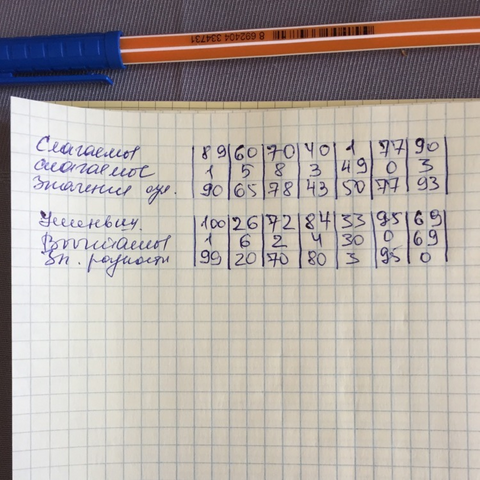 8 692404 334731
Слагаемое 89 60 70 40 1 77 90
слагаемое 1 5 8 3 49 0 3
Значения сум. 90 65 78 43 50 77 93
Уменьш. 100 26 72 84 33 95 69
Вычитаемое 1 6 2 4 30 0 69
Зн. разности 99 20 70 80 3 95 0